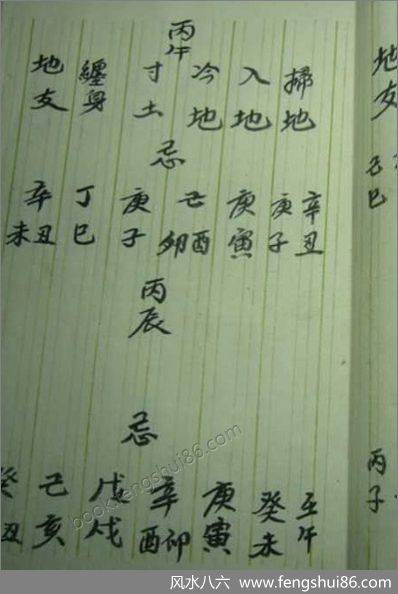 地支
己巳
丙子
丙午
掃地
入地
冷地
寸土
纏身
地支
忌
辛丑
庚子
庚寅
己酉卯
庚子
丁巳
辛丑未
丙辰
忌
壬午
癸未
庚寅
辛卯酉
戊戌
己亥
癸丑
book.fengshui86.com
风水八六 www.fengshui86.com